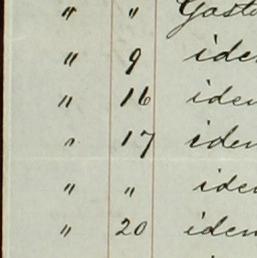 " " Gasto
" 9 iden
" 16 iden
" 17 iden
" " iden
" 20 iden